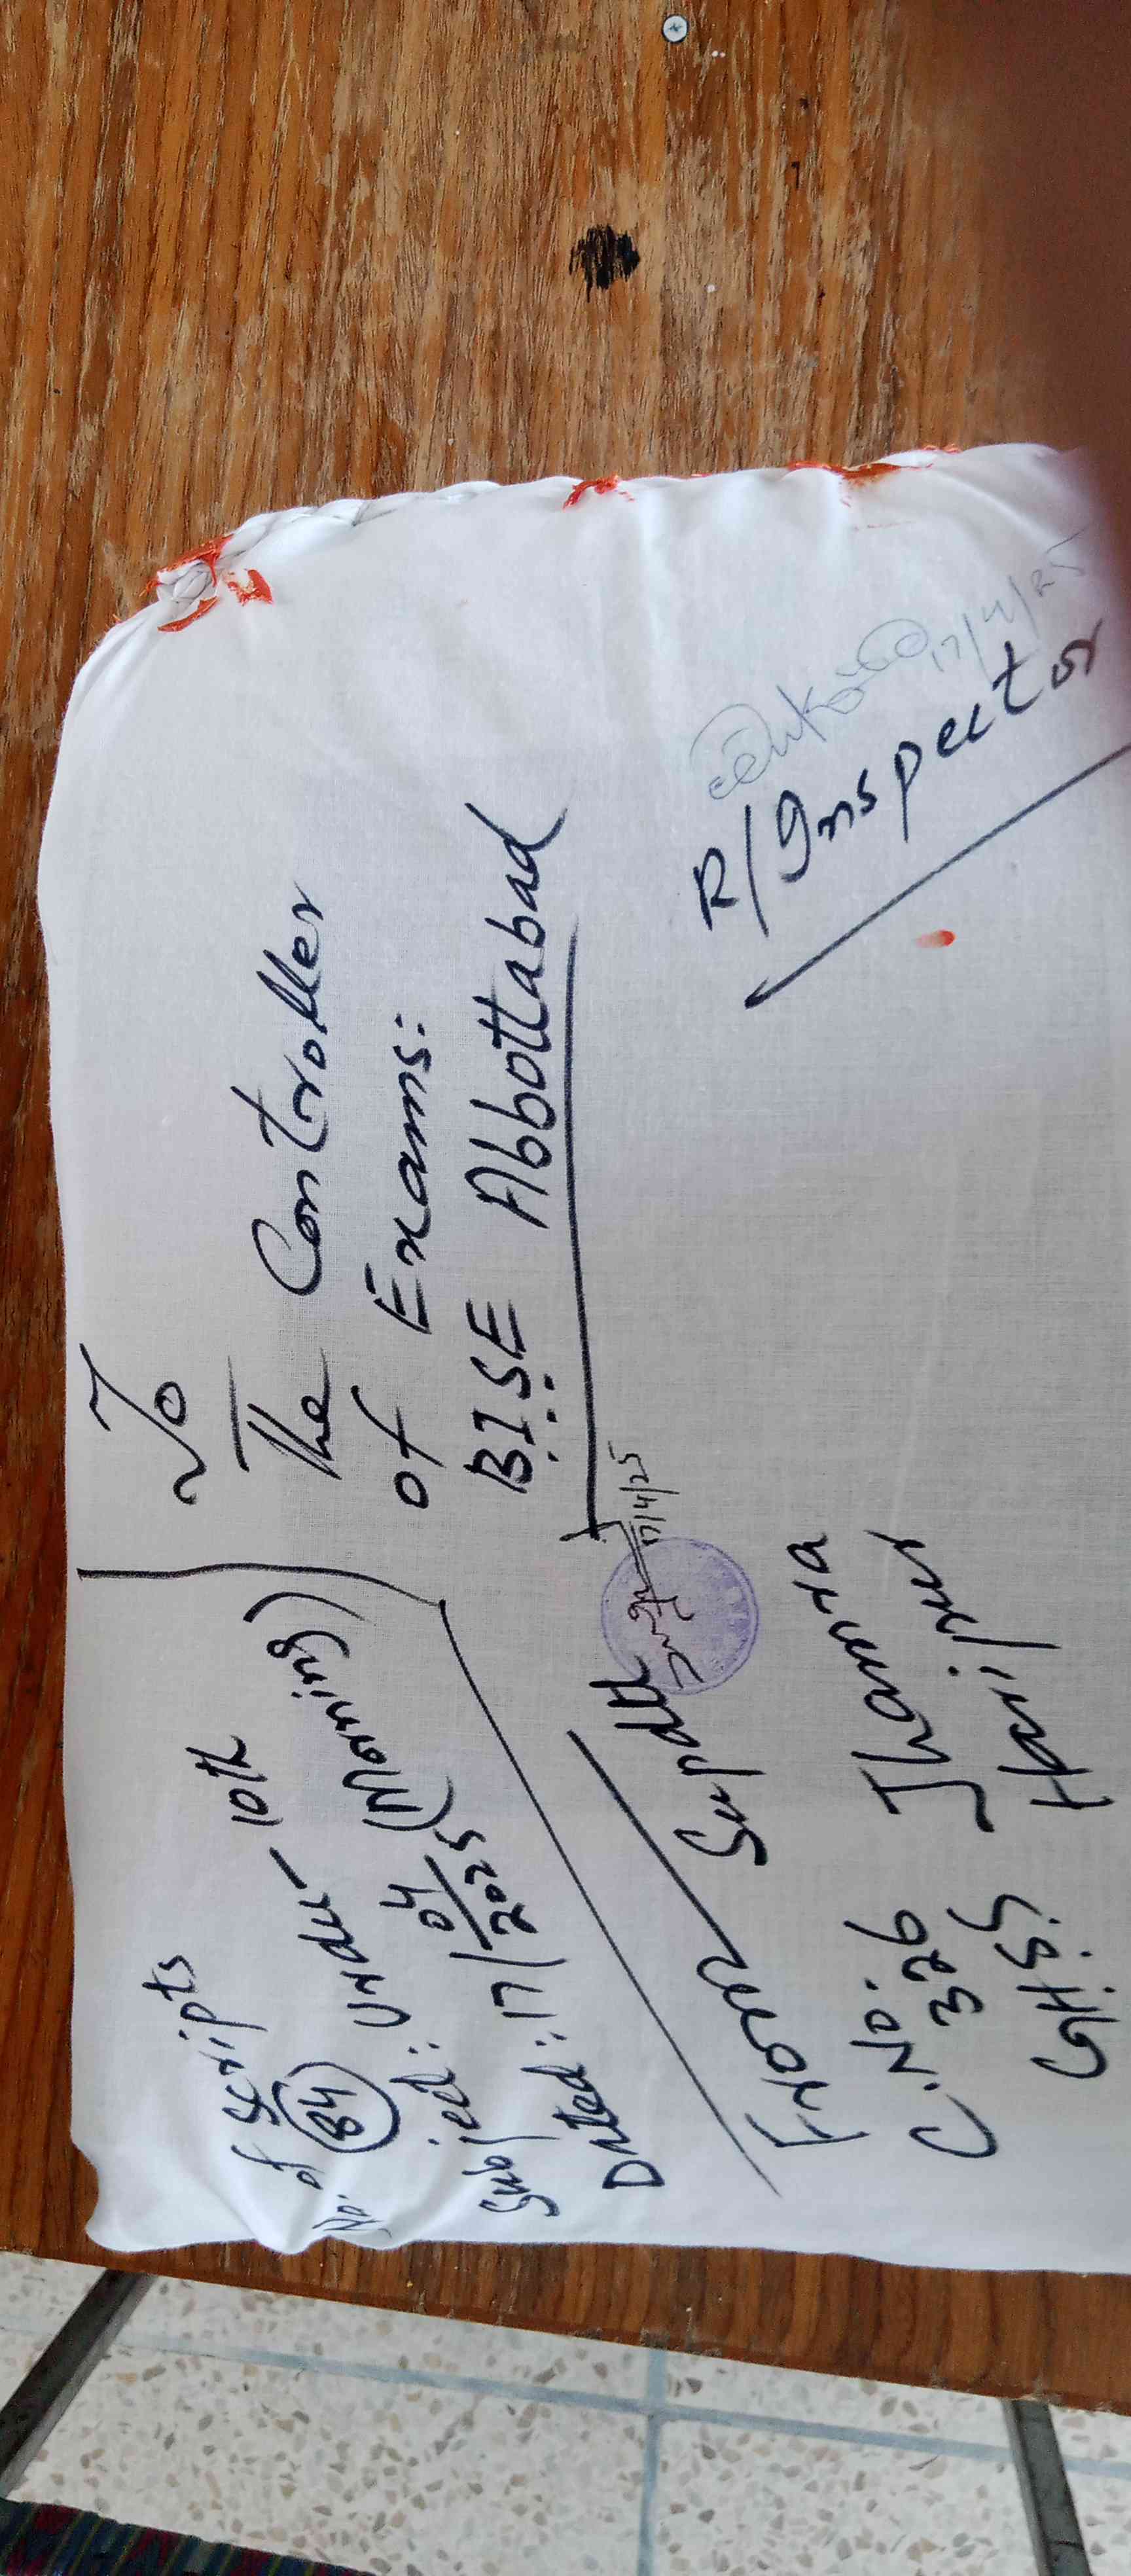 No. of Scripts
84
Subject: Urdu - 10th
Dated: 17/04/2025 (Morning)
To
The Controller
of Exams:
B.I.S.E Abbottabad
From Supdtt
17/4/25
C.No. 326 Jhamra
G.H.S.S. Haripur
17/4/25
R/Inspector